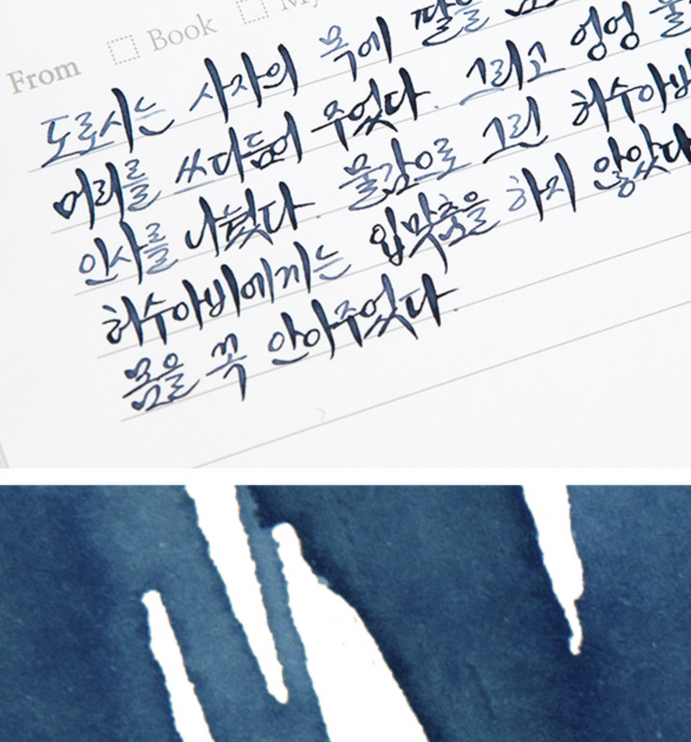 From Book My
도로시는 사자의 목에 팔을
머리를 쓰다듬어 주었다. 그리고 엉엉 울
인사를 나눴다. 물감으로 그린 허수아비
허수아비에게는 입맞춤을 하지 않았다
몸을 꼭 안아주었다.